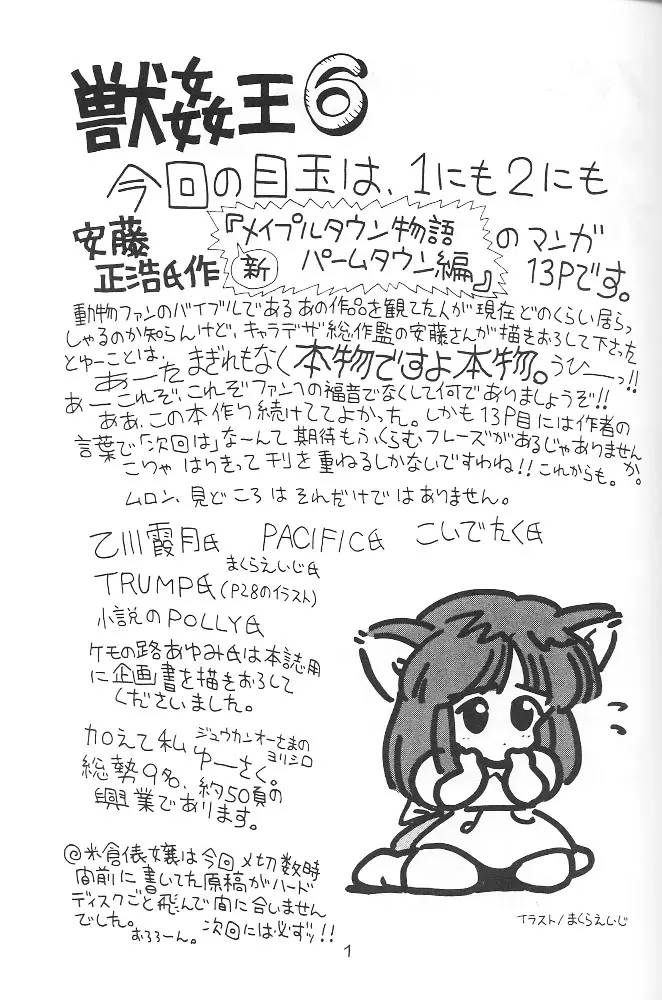 獣姦王6
今回の目玉は、1にも2にも
安藤正浩氏作
『メイプルタウン物語
新 パームタウン編』
のマンガ
13Pです。
動物ファンのバイブルであるあの作品を観てた人が現在どのくらい居らっ
しゃるのか知らんけど、キャラデザ総作監の安藤さんが描きおろして下さった
とゆーことは、まぎれもなく本物ですよ本物。うひーっ!!
あーた
あーこれぞ、これぞファンへの福音でなくして何でありましょうぞ!!
ああ、この本作り続けててよかった。しかも13P目には作者の
言葉で「次回は」な~んて期待もふくらむフレーズがあるじゃありません
か。
こりゃはりきって刊を重ねるしかないですわね!!これからも。
ムロン、見どころはそれだけではありません。
乙川霞月氏 PACIFIC氏 こいでたく氏
まくらえいじ氏
TRUMP氏(P28のイラスト)
小説のPOLLY氏
ケモの路あゆみ氏は本誌用
に企画書を描きおろして
くださいました。
加えて私 ジュウカンオーさまの
ヨリシロ
ゆーさく。
総勢9名、約50頁の
興業であります。
@米倉俵嬢は今回〆切数時
間前に書いてた原稿がハード
ディスクごと飛んで間に合いません
でした。
おろろーん。 次回には必ずッ!!
イラスト/まくらえいじ
1